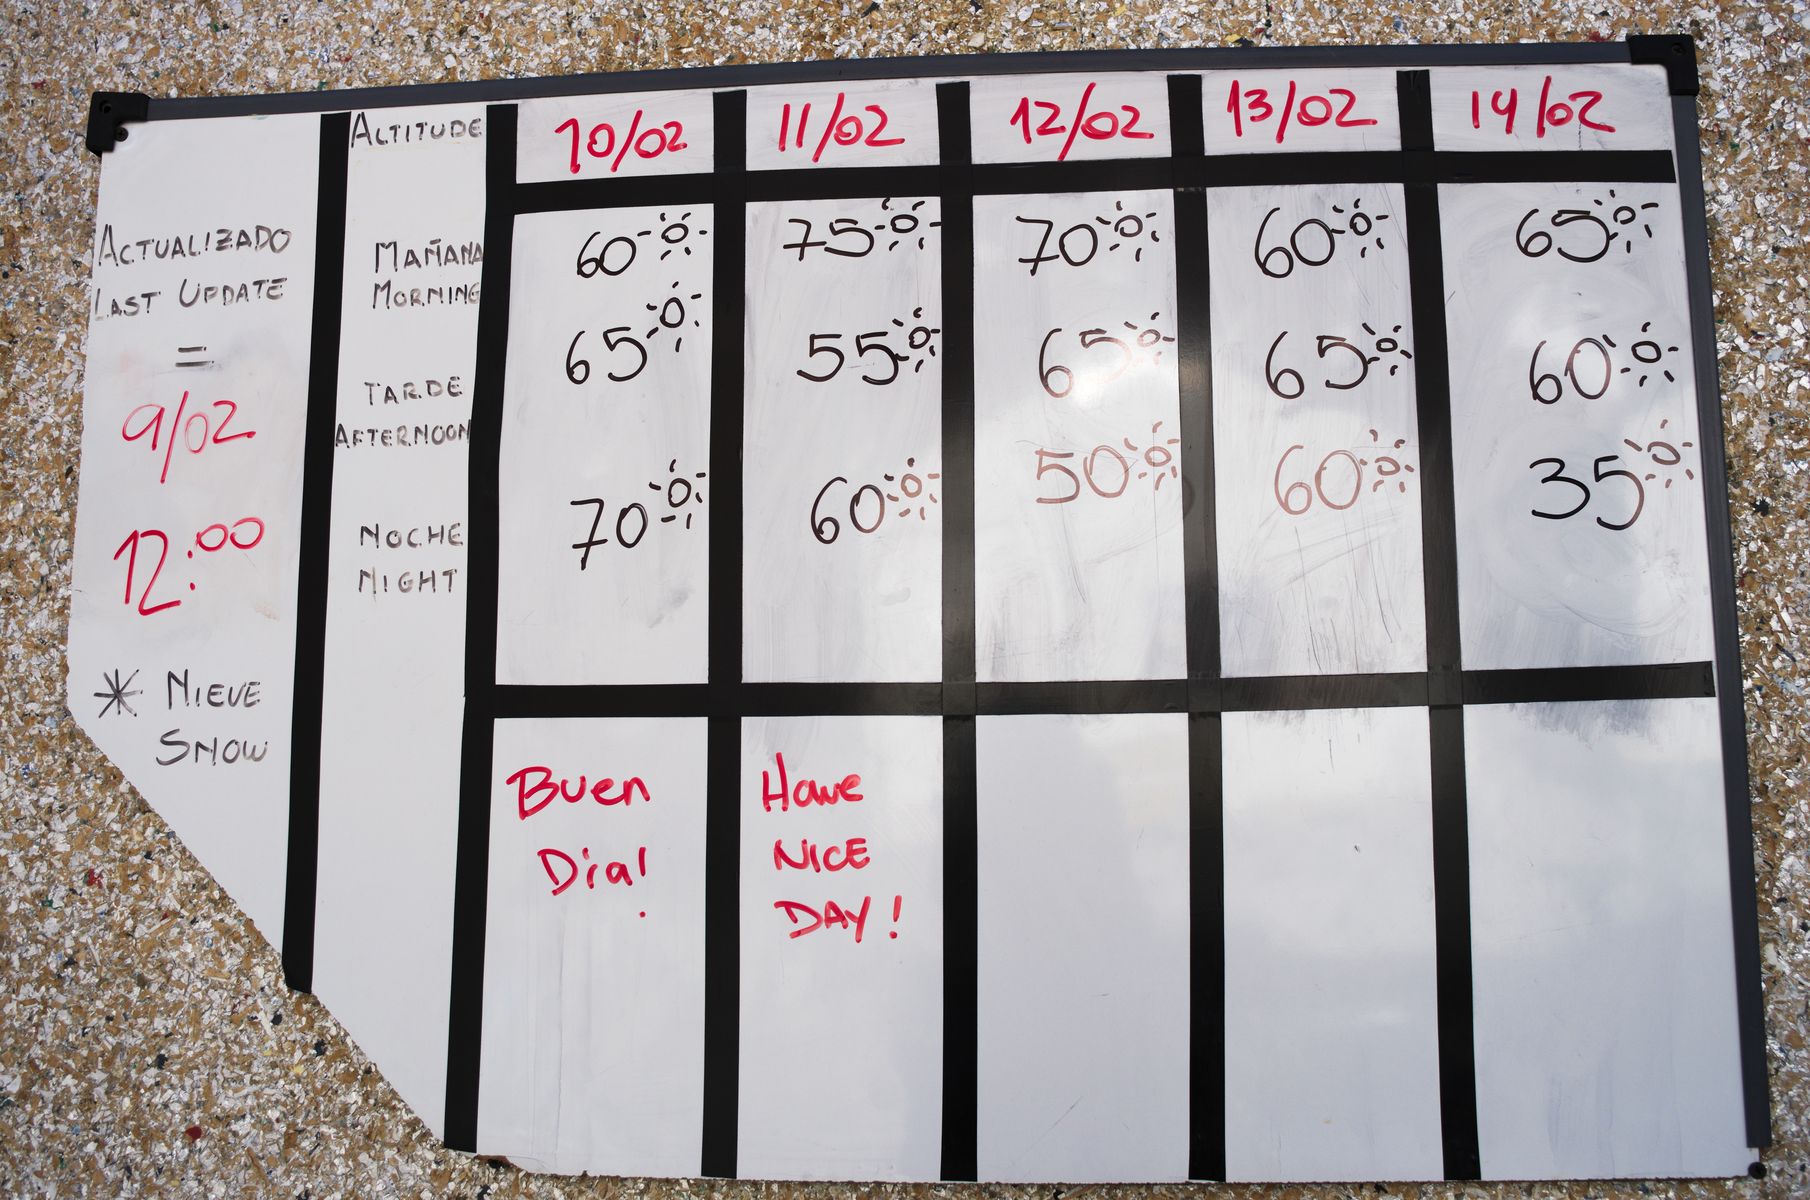 ALTITUDE
10/02 11/02 12/02 13/02 14/02
ACTUALIZADO
LAST UPDATE
=
9/02
12:00
* NIEVE
SNOW
MAÑANA
MORNING
60 75 70 60 65
TARDE
AFTERNOON
65 55 65 65 60
NOCHE
NIGHT
70 60 50 60 35
Buen
Dia!
Have
NICE
DAY!